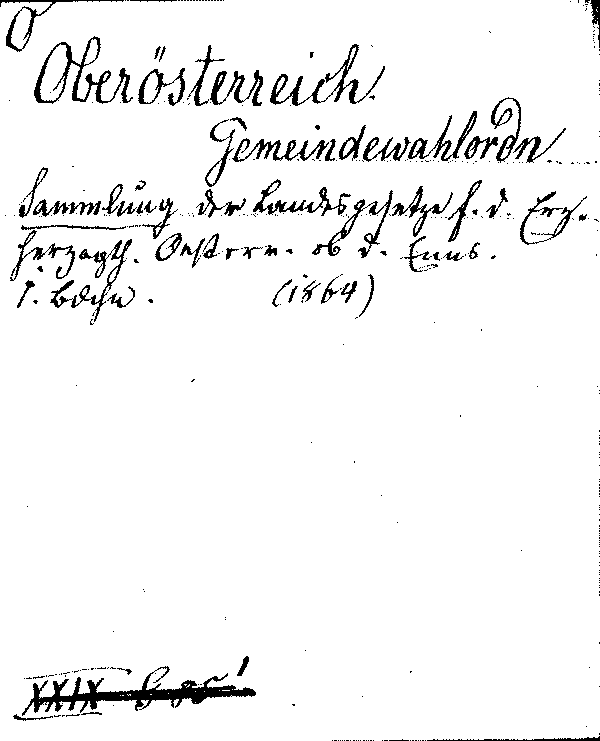 O
Oberösterreich.
Gemeindewahlordn.
Sammlung der Landesgesetze f. d. Erz-
herzogth. Oesterr. ob d. Enns.
(1864)
XXIX